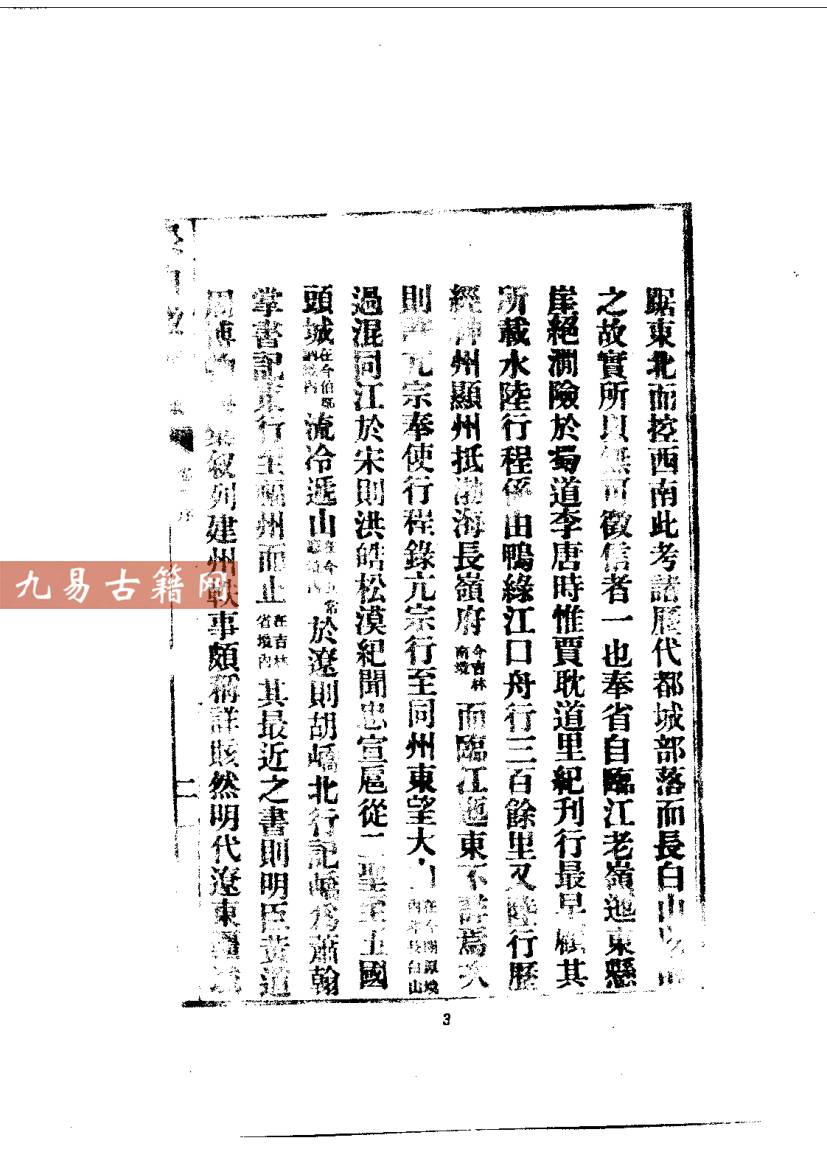 踞東北而控西南此考諸歷代都城部落而長白山
之故實所以無可徵信者一也奉省自臨江老嶺迤東懸
崖絕澗險於蜀道李唐時惟賈耽道里紀刊行最早顧其
所載水陸行程係由鴨綠江口舟行三百餘里又陸行歷
經神州顯州抵渤海長嶺府今吉林南境而臨江迤東不詳焉
則許亢宗奉使行程錄亢宗行至同州東望大山在今開原境內非長白山
過混同江於宋則洪皓松漠紀聞忠宣扈從二聖至五國
頭城在今伯都訥境內流冷遞山於遼則胡嶠北行記嶠為蕭翰
掌書記東行至福州而止在吉林省境內其最近之書則明臣黃道
周博物典彙敘列建州軼事頗稱詳賅然明代遼東
二
3
九易古籍网